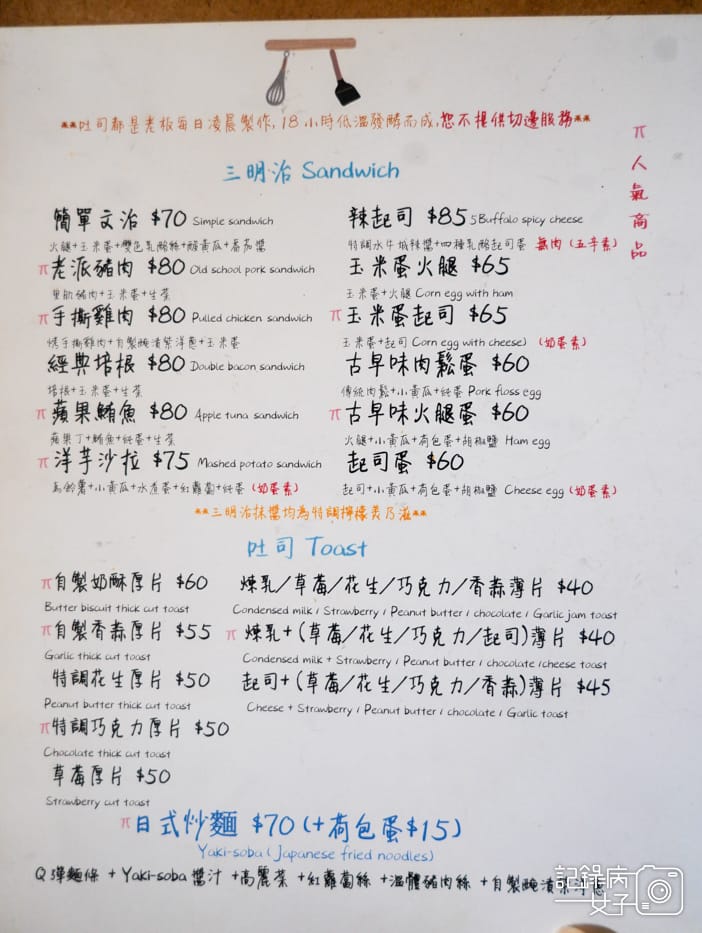 **吐司都是老板每日凌晨製作,18小時低溫發酵而成,恕不提供切邊服務**
π人氣商品
三明治 Sandwich
簡單文治 $70 Simple sandwich
火腿+玉米蛋+雙色乳酪絲+酸黃瓜+蕃茄醬
π老派豬肉 $80 Old school pork sandwich
里肌豬肉+玉米蛋+生菜
π手撕雞肉 $80 Pulled chicken sandwich
烤手撕雞肉+自製醃漬紫洋蔥+玉米蛋
經典培根 $80 Double bacon sandwich
培根+玉米蛋+生菜
π蘋果鮪魚 $80 Apple tuna sandwich
蘋果丁+鮪魚+純蛋+生菜
π洋芋沙拉 $75 Mashed potato sandwich
馬鈴薯+小黃瓜+水煮蛋+紅蘿蔔+純蛋 (奶蛋素)
辣起司 $85 5Buffalo spicy cheese
特調水牛城辣醬+四種乳酪起司蛋 無肉 (五辛素)
玉米蛋火腿 $65
玉米蛋+火腿 Corn egg with ham
π玉米蛋起司 $65
玉米蛋+起司 Corn egg with cheese) (奶蛋素)
古早味肉鬆蛋 $60
傳統肉鬆+小黃瓜+純蛋 Pork floss egg
π古早味火腿蛋 $60
火腿+小黃瓜+荷包蛋+胡椒鹽 Ham egg
起司蛋 $60
起司+小黃瓜+荷包蛋+胡椒鹽 Cheese egg (奶蛋素)
**三明治抹醬均為特調檸檬美乃滋**
吐司 Toast
π自製奶酥厚片 $60
Butter biscuit thick cut toast
π自製香蒜厚片 $55
Garlic thick cut toast
特調花生厚片 $50
Peanut butter thick cut toast
π特調巧克力厚片 $50
Chocolate thick cut toast
草莓厚片 $50
Strawberry cut toast
煉乳/草莓/花生/巧克力/香蒜薄片 $40
Condensed milk / Strawberry / Peanut butter / chocolate / Garlic jam toast
π煉乳+(草莓/花生/巧克力/起司)薄片 $40
Condensed milk + Strawberry / Peanut butter / chocolate /cheese toast
起司+(草莓/花生/巧克力/香蒜)薄片 $45
Cheese + Strawberry / Peanut butter / chocolate / Garlic toast
π日式炒麵 $70(+荷包蛋$15)
Yaki-soba(Japanese fried noodles)
Q彈麵條 +Yaki-soba醬汁 +高麗菜 +紅蘿蔔絲 +溫體豬肉絲 +自製醃漬
記錄病女子